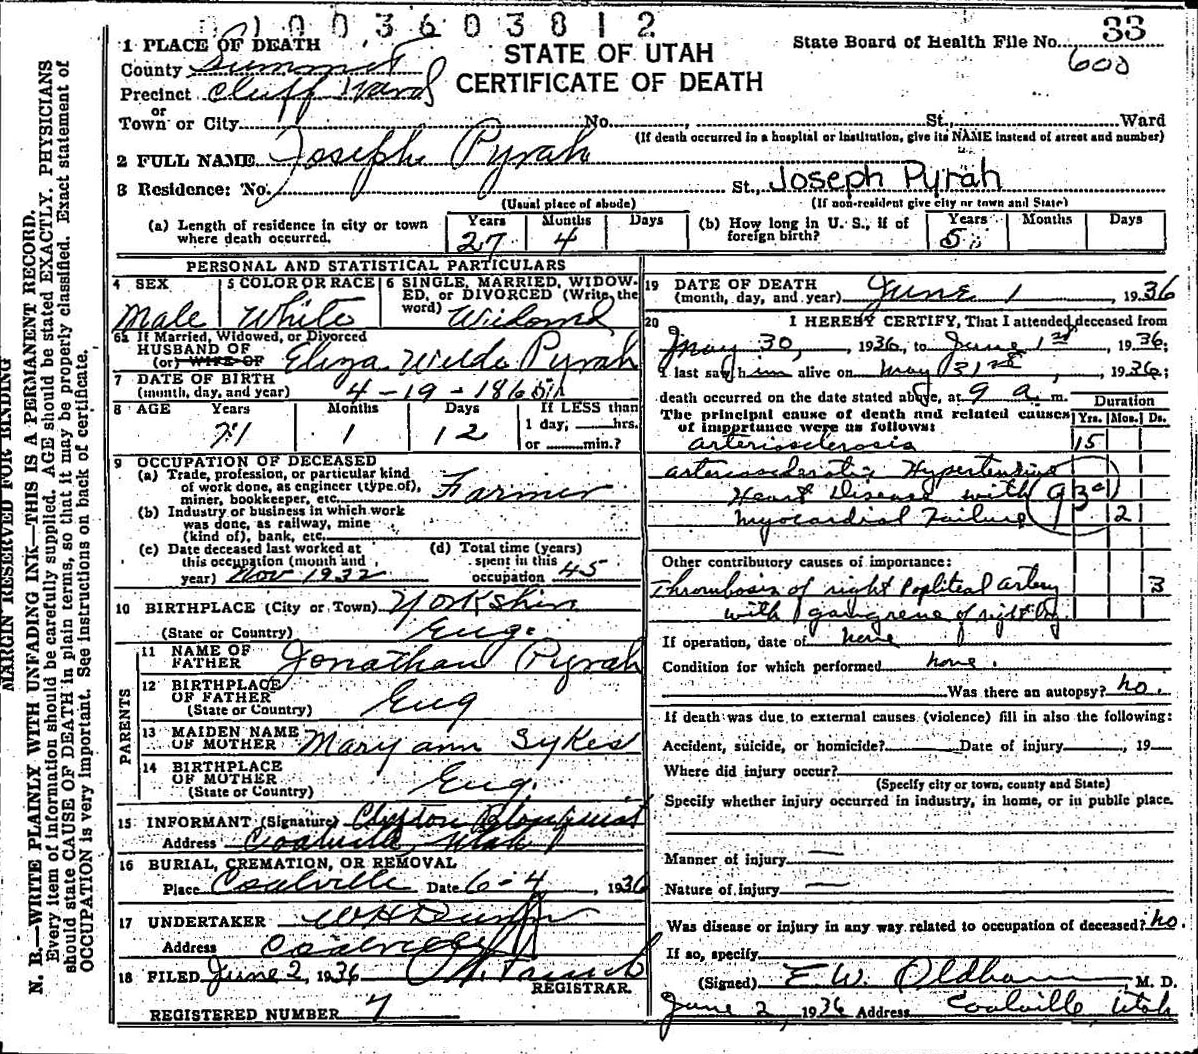 1003603812
1 PLACE OF DEATH
STATE OF UTAH
CERTIFICATE OF DEATH
State Board of Health File No. 33
600
County Summit
Precinct Cluff Ward
or
Town or City No. , St., Ward
(If death occurred in a hospital or institution, give its NAME instead of street and number)
2 FULL NAME Joseph Pyrah
3 Residence: No. St., Joseph Pyrah
(Usual place of abode) (If non-resident give city or town and State)
(a) Length of residence in city or town where death occurred. Years 27 Months 4 Days
(b) How long in U. S., if of foreign birth? Years Months Days
PERSONAL AND STATISTICAL PARTICULARS
4 SEX Male
5 COLOR OR RACE White
6 SINGLE, MARRIED, WIDOWED, or DIVORCED (Write the word) Widowed
6a If Married, Widowed, or Divorced
HUSBAND OF
(or) WIFE OF Eliza Wilde Pyrah
7 DATE OF BIRTH
(month, day, and year) 4-19-186
8 AGE Years 71 Months 1 Days 12 If LESS than 1 day, hrs. or min.?
9 OCCUPATION OF DECEASED
(a) Trade, profession, or particular kind of work done, as engineer (type of), miner, bookkeeper, etc. Farmer
(b) Industry or business in which work was done, as railway, mine (kind of), bank, etc.
(c) Date deceased last worked at this occupation (month and year) Nov 1932
(d) Total time (years) spent in this occupation 45
10 BIRTHPLACE (City or Town) Yorkshire
(State or Country) Eng.
PARENTS
11 NAME OF FATHER Jonathan Pyrah
12 BIRTHPLACE OF FATHER
(State or Country) Eng
13 MAIDEN NAME OF MOTHER Mary ann Sykes
14 BIRTHPLACE OF MOTHER
(State or Country) Eng.
15 INFORMANT (Signature) Clifton Blonquist
Address Coalville, Utah
16 BURIAL, CREMATION, OR REMOVAL
Place Coalville Date 6-4, 1936
17 UNDERTAKER
Address Coalville
18 FILED June 2, 1936
REGISTRAR.
REGISTERED NUMBER 7
19 DATE OF DEATH
(month, day, and year) June 1, 1936
20 I HEREBY CERTIFY, That I attended deceased from
May 30, 1936, to June 1st, 1936;
I last saw him alive on May 31st, 1936;
death occurred on the date stated above, at 9 a. m.
Duration
The principal cause of death and related causes of importance were as follows: Yrs. Mos. Ds.
arteriosclerosis 15
arteriosclerotic Hypertensive
Heart Disease with 93c
myocardial Failure 2
Other contributory causes of importance:
Thrombosis of right Popliteal artery 3
with gangrene of right leg.
If operation, date of none
Condition for which performed none.
Was there an autopsy? no.
If death was due to external causes (violence) fill in also the following:
Accident, suicide, or homicide? Date of injury , 19
Where did injury occur?
(Specify city or town, county and State)
Specify whether injury occurred in industry, in home, or in public place.
Manner of injury —
Nature of injury —
Was disease or injury in any way related to occupation of deceased? no.
If so, specify
(Signed) E. W. Oldham, M. D.
June 2, 1936 Address Coalville, Utah
MARGIN RESERVED FOR BINDING
N. B.—WRITE PLAINLY WITH UNFADING INK—THIS IS A PERMANENT RECORD.
Every item of information should be carefully supplied. AGE should be stated EXACTLY. PHYSICIANS
should state CAUSE OF DEATH in plain terms, so that it may be properly classified. Exact statement of
OCCUPATION is very important. See instructions on back of certificate.